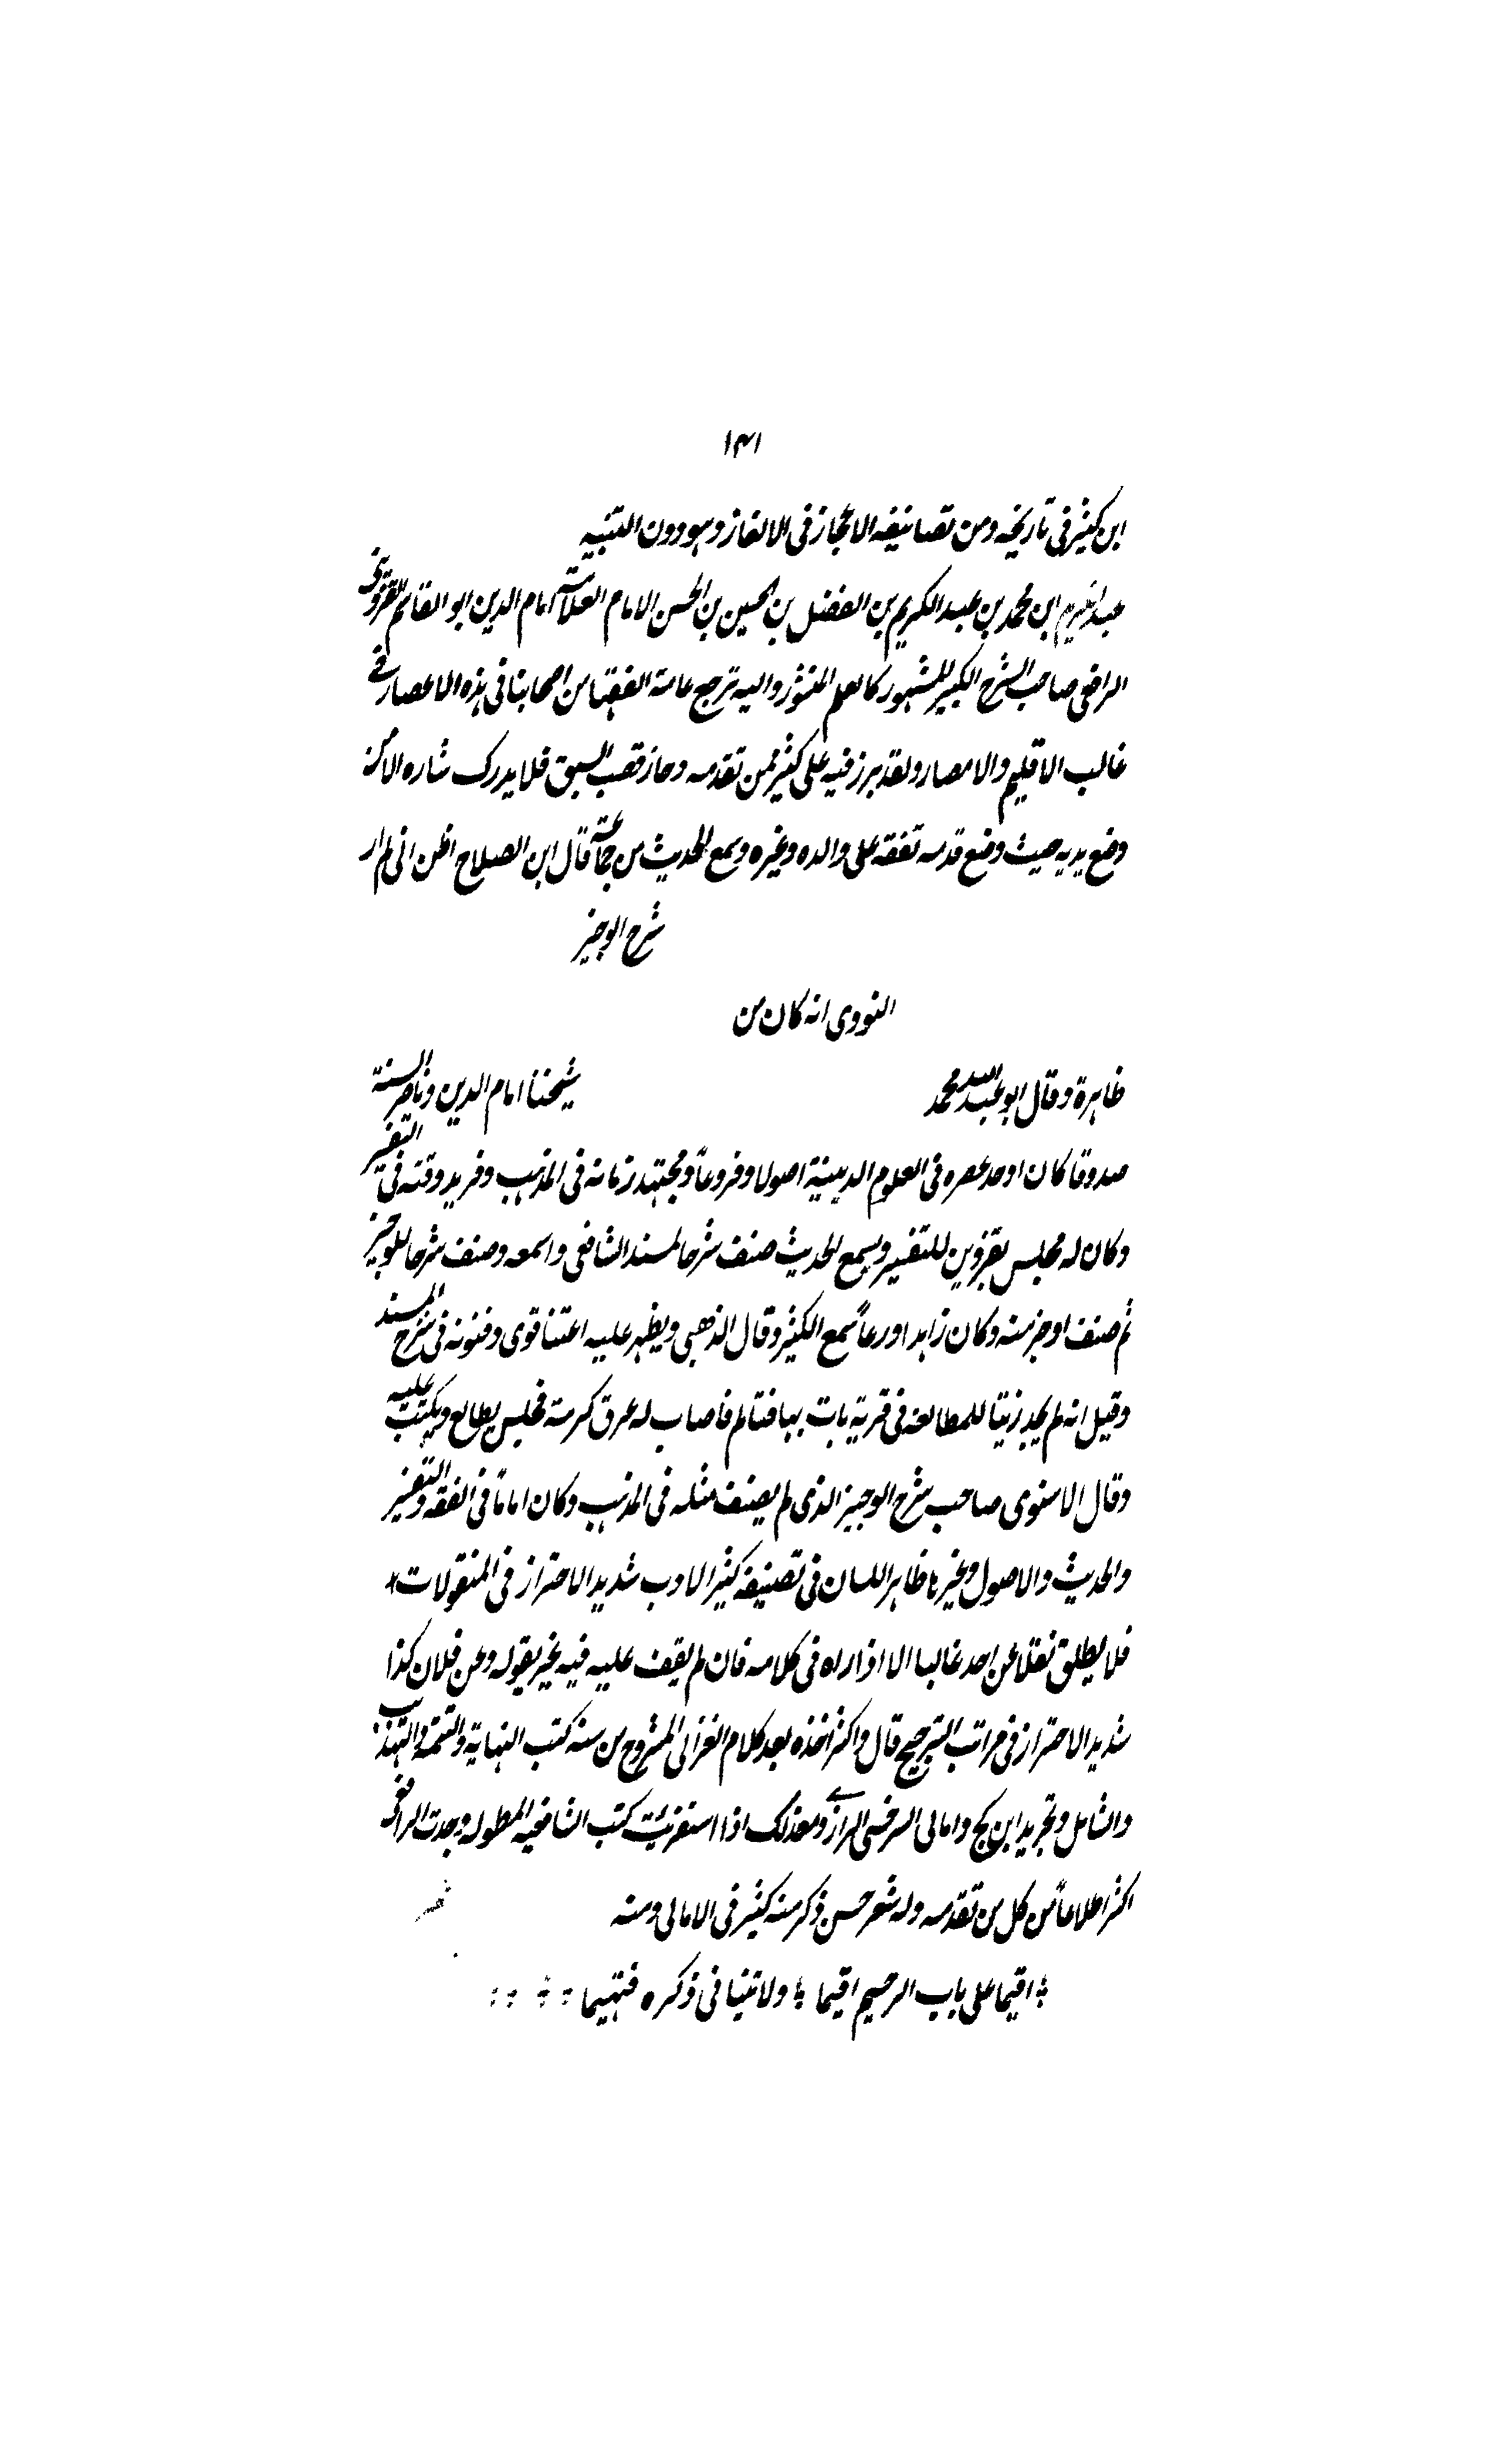 ١٣١
ابن كثير فى تاريخه ومن تصانيفه الاعجاز فى الالغاز وهو دون التنبيه
عبد الكريم ابن محمد بن عبد الكريم بن الفضل بن الحسين بن الحسن الامام العلامة امام الدين ابو القاسم القزوينى
الرافعى صاحب الشرح الكبير المشهور كالعلم المنشور واليه ترجع عامة الفقها من اصحابنا فى هذه الاعصار فى
غالب الاقليم والامصار ولقد برز فيه على كثير ممن تقدمه وحاز قصب السبق فلا يدرك شاره الا من
وضع يديه حيث وضع قدمه تفقه على والده وغيره وسمع الحديث من جماعة قال ابن الصلاح اظن انى لم ار
شرح الوجيز
النووى انه كان من
ظاهرة وقال ابو عبد الله محمد شيخنا امام الدين وناصر السنة
صدوقا كان اوحد عصره فى العلوم الدينية اصولا وفروعاً ومجتهد زمانه فى المذهب وفريد وقته فى التفسير
وكان له مجلس بقزوين للتفسير ويسمع الحديث صنف شرحا لمسند الشافعى واسمعه وصنف شرحا للوجيز
ثم صنف اوجز منه وكان زاهدا ورعاً سمع الكثير وقال الذهبى ويظهر عليه اعتنا قوى وفنونه فى شرح المسند
وقيل انه لم يجد زيتا للمطالعة فى قرية بات بها فتالم فاصاب له عرق كرمة فجلس يطالع ويكتب عليه
وقال الاسنوى صاحب شرح الوجيز الذى لم يصنف مثله فى المذهب وكان اماماً فى الفقه والتفسير
والحديث والاصول وغيرها ظاهر اللسان فى تصنيفه كثير الادب شديد الاحتراز فى المنقولات*
فلا يطلق نقلا عن احد غالبا الا اذا راه فى كلامه فان لم يقف عليه فيه بغير بقوله وعن فلان كذا
شديد الاحتراز فى مراتب الترجيح قال واكثر اخذه بعد كلام الغزالى المشروح من ستة كتب النهاية والتتمة والتهذيب
والشامل وتجريد ابن كج وامالى السرخسى الرازى ومع ذلك اذا استقريت كتب الشافعيه المطوله وجدت الرافعى
اكثر اطلاعاً من كل من تقدمه وله شعر حسن ذكر منه كثير فى الامالى ومنه
اقيما على باب الرحيم اقيما ولا تنيا فى ذكره فتهيما